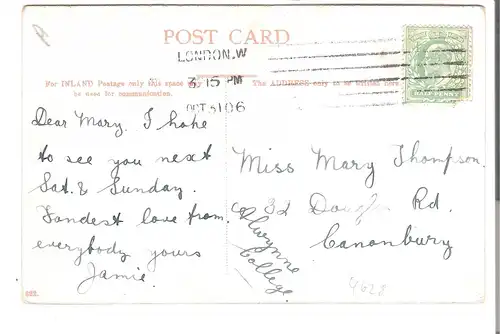 POST CARD
LONDON.W
3 15 PM
OCT 31 06
HALF PENNY
For INLAND Postage only this space may
be used for communication.
The ADDRESS only to be written here.
Dear Mary. I hope
to see you next
Sat. & Sunday.
Fondest love from
everybody yours
Jamie.
Miss Mary Thompson.
Rd.
Canonbury
College.
4628